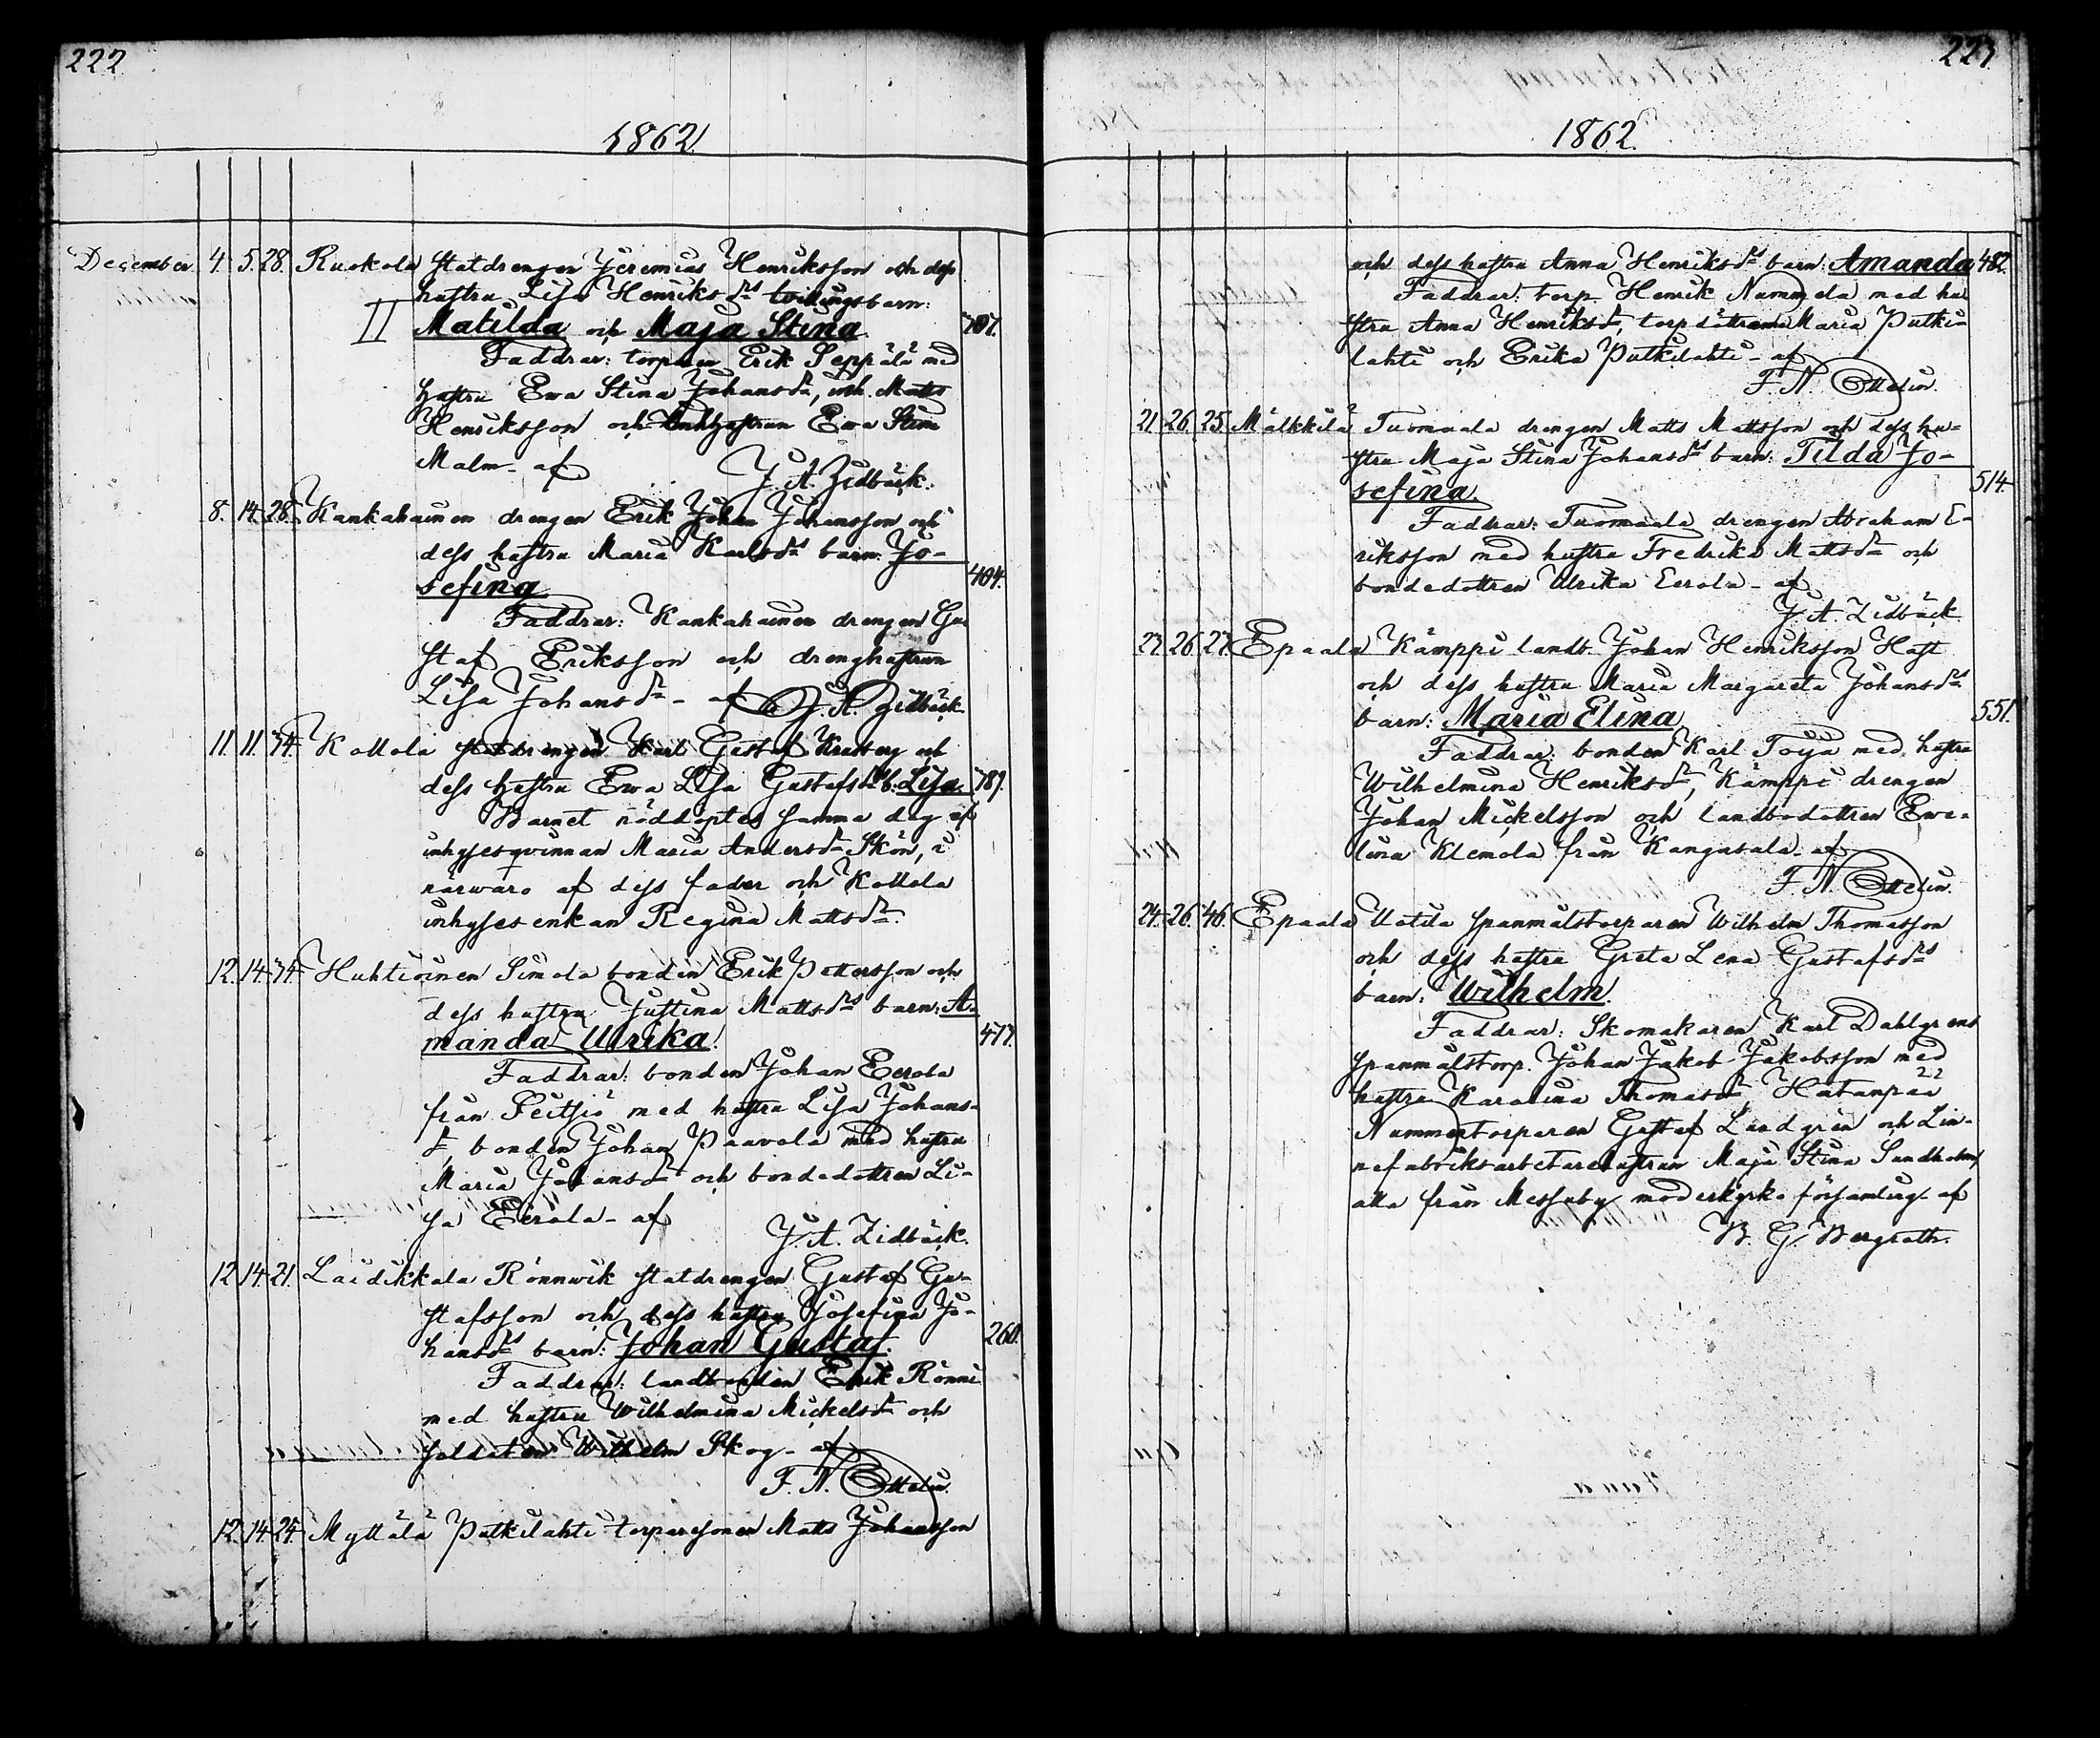 222
1862.
December 4. 5. 28. Ruokola statdrengen Jeremias Henriksson och dess
hustru Lisa Henriksdrs tvillingsbarn:
II Matilda och Maja Stina 707.
Faddrar: torparen Erik Seppälä med
hustru Ewa Stina Johansdr, Matts
Henriksson och Ewa Stina
Malm - af J. A. Zidbäck.
8. 14. 28. Kankahainen drengen Erik Johan Johansson och
dess hustru Maria Karlsdrs barn: Jo-
sefina 404.
Faddrar: Kankahainen drengen Gu
staf Eriksson och drenghustrun
Lisa Johansdr - af J. A. Zidbäck.
11. 11. 34. Kottola statdrengen Karl Gustaf och
dess hustru Ewa Lisa Gustafsdrs b: Lisa. 789.
Barnet nöddöptes samma dag af
inhysesqvinnan Maria Andersdr Skön, i
närwaro af dess fader och Kottola
inhysesenkan Regina Mattsdr.
12. 14. 34. Huhtioinen Simola bonden Erik Pettersson och
dess hustru Justina Mattsdrs barn: A-
manda Ulrika. 477.
Faddrar: bonden Johan Eerola
från med hustru Lisa Johans-
dr, bonden Johan Paavola med hustru
Maria Johansdr och bondedottren Li-
sa Eerola - af J. A. Zidbäck.
12. 14. 21. Laidikkala Rönnwik statdrengen Gustaf Gu-
stafsson och dess hustru Josefina Jo-
hansdrs barn: Johan Gustaf. 260.
Faddrar: landbonden Erik Rönni
med hustru Wilhelmina Mickelsdr och
soldaten Wilhelm Skog - af
F. N. Ottelin.
12. 14. 24. Myttälä Putkilahti torparsonen Matts Johansson
223
1862.
och dess hustru Anna Henriksdrs barn: Amanda 482.
Faddrar: torp. Henrik Nummela med hu
stru Anna Henriksdr, torpdöttrarna Maria Putki-
lahti och Erika Putkilahti - af
F. N. Ottelin.
21. 26. 25. Mälkkilä Tuomaala drengen Matts Mattsson och dess hu-
stru Maja Stina Johansdrs barn: Tilda Jo-
sefina. 514.
Faddrar: Tuomaala drengen Abraham E-
riksson med hustru Fredrika Mattsdr och
bondedottren Ulrika Eerola - af
J. A. Zidbäck
23. 26. 27. Epaala Kämppi landb. Johan Henriksson Hast
och dess hustru Maria Margareta Johansdrs
barn: Maria Elina 551.
Faddrar: bonden Karl Töyä med hustru
Wilhelmina Henriksdr, Kämppi drengen
Johan Mickelsson och landbodottren Ewe-
lina Klemola från Kangasala - af
F. N. Ottelin.
24. 26. 46. Epaala Uotila spanmålstorparen Wilhelm Thomasson
och dess hustru Greta Lena Gustafsdrs
barn: Wilhelm.
Faddrar: Skomakaren Karl Dahlgrens
spanmålstorp. Johan Jakob Jakobsson med
hustru Karolina Thomasdr Hatanpää
Nummertorparen Gustaf Lindgren och Lin-
nefabriksarbetarehustrun Maja Stina Sandholm,
alla från Messuby moderkyrko församling - af
B. G. Bergroth.